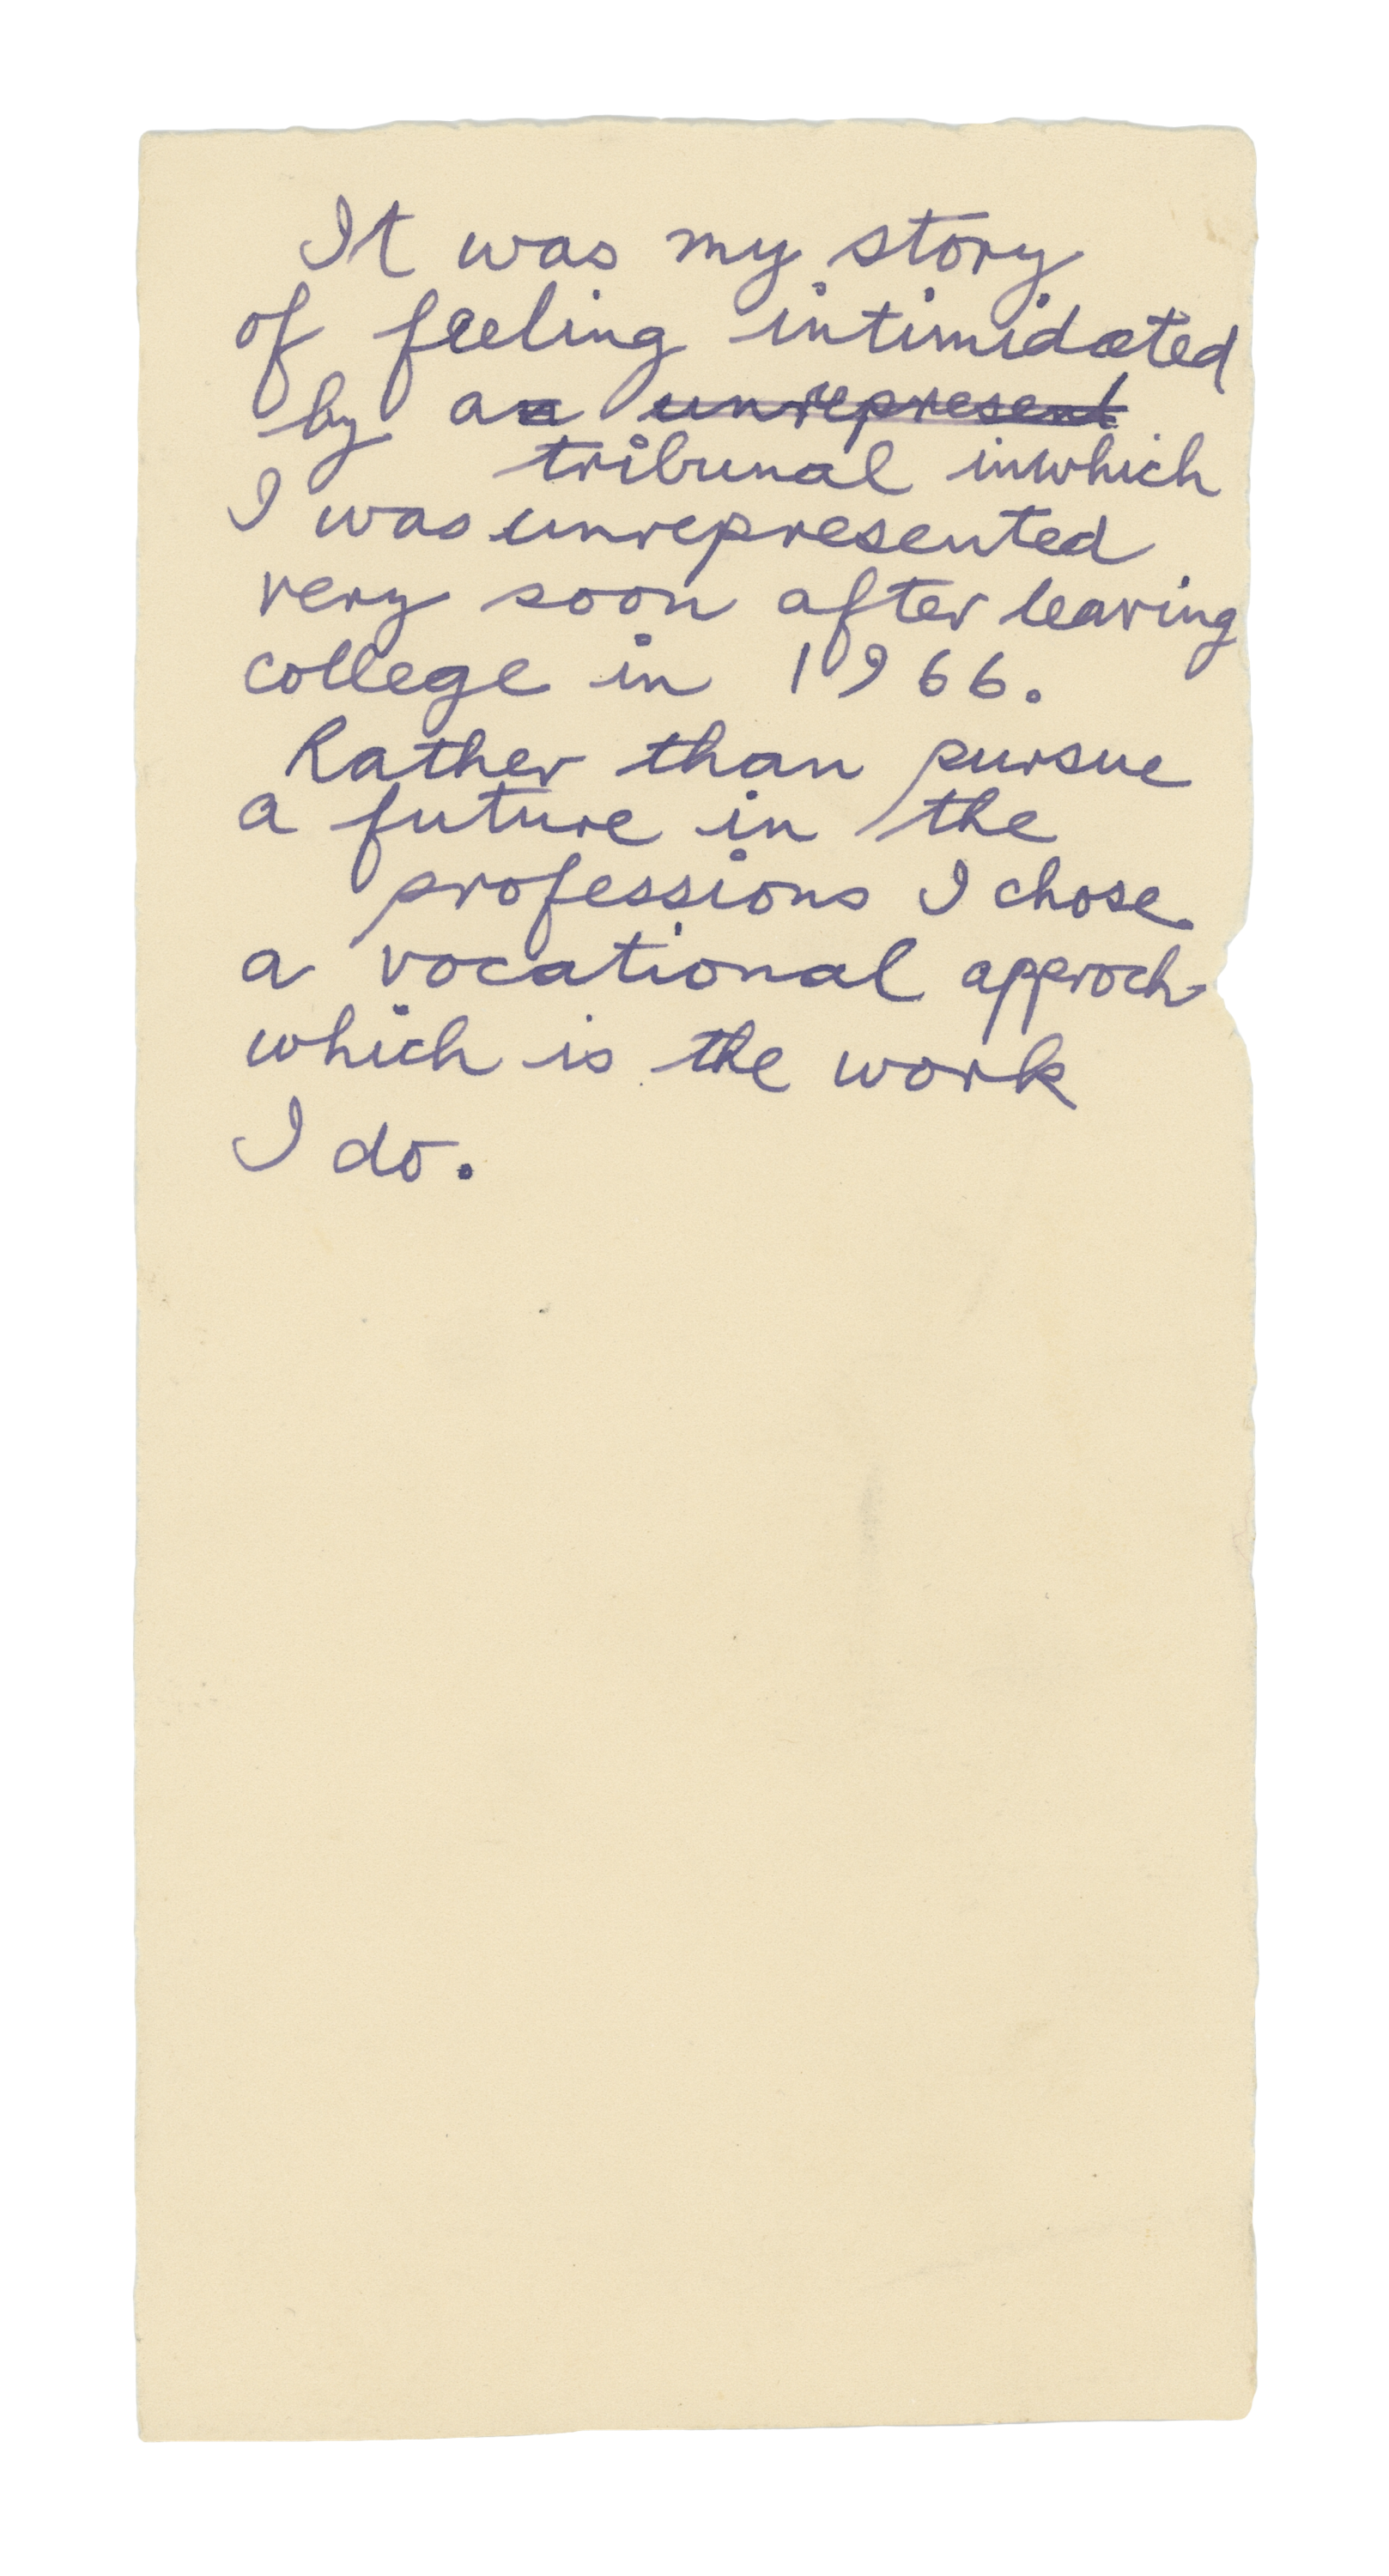 It was my story
of feeling intimidated
by an unrepresent
tribunal inwhich
I was unrepresented
very soon after leaving
college in 1966.
Rather than pursue
a future in the
professions I chose
a vocational approch
which is the work
I do.